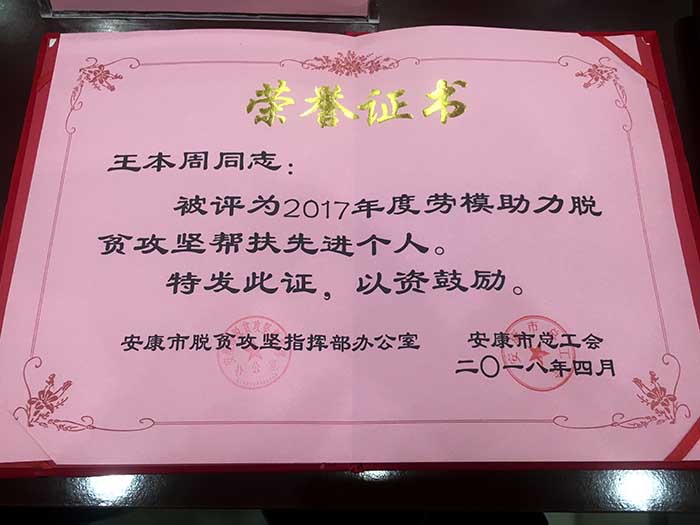 荣誉证书
王本周同志：
被评为2017年度劳模助力脱
贫攻坚帮扶先进个人。
特发此证，以资鼓励。
安康市脱贫攻坚指挥部办公室 安康市总工会
二〇一八年四月